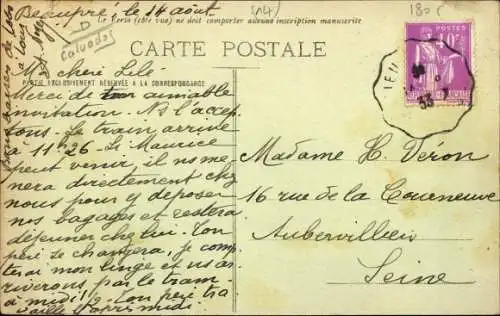 Beaupré, le 14 août
(14)
180 F
Ce Verso (côté vue) ne doit comporter aucune inscription manuscrite
Calvados
CARTE POSTALE
PARTIE EXCLUSIVEMENT RÉSERVÉE A LA CORRESPONDANCE
Ma chère Lilé
Merci de ton aimable
invitation. Ns l'accep
tons. Le train arrive
à 11h26. Si Maurice
peut venir, il ns mè
nera directement chez
nous pour y déposer
nos bagages et restera
déjeuner chez lui. Ton
père se changera, je comp
terai mon linge et ns ar
riverons, par le tram
à midi 1/2. Ton père tra
vaille l'après midi.
POSTES
40c
33
Madame H. Véron
16 rue de la Courneuve
Aubervilliers
Seine